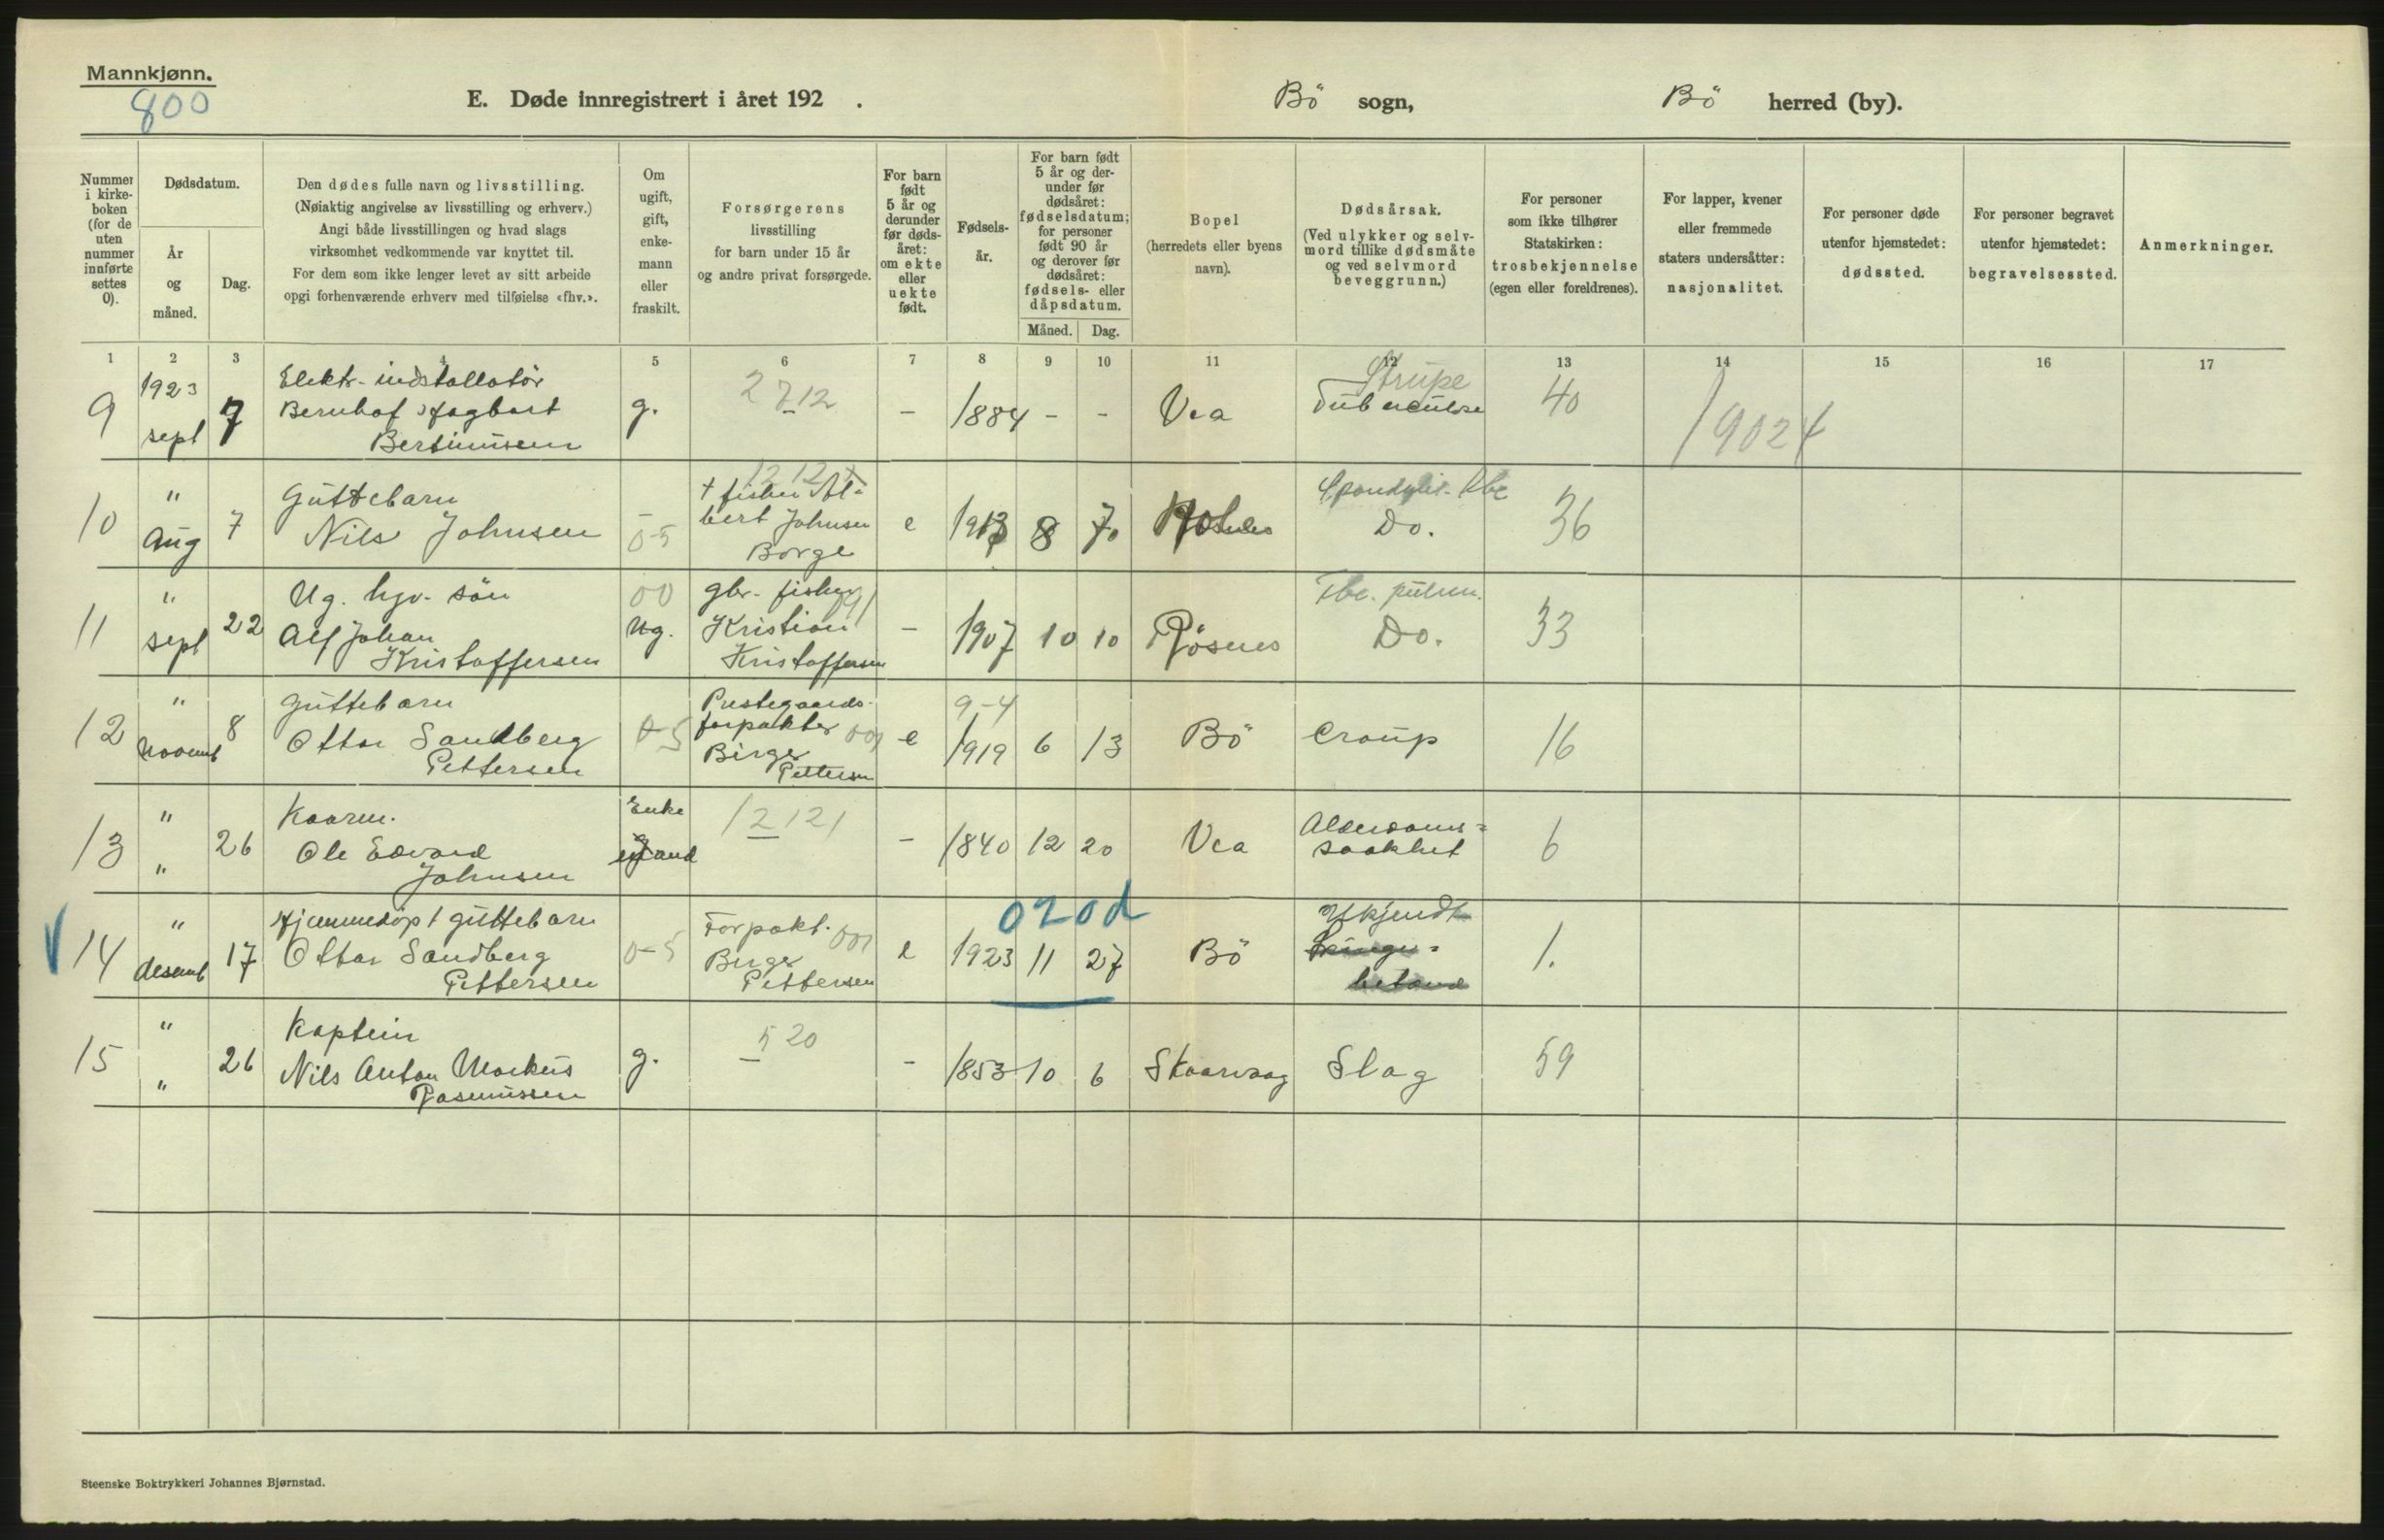 Mannkjønn.
800
E. Døde innregistrert i året 192 .
Bö sogn,
Bö herred (by).
Nummer i kirke-boken (for de uten nummer innførte settes 0).
Dødsdatum.
År og måned.
Dag.
Den dødes fulle navn og livsstilling.
(Nøiaktig angivelse av livsstilling og erhverv.)
Angi både livsstillingen og hvad slags
virksomhet vedkommende var knyttet til.
For dem som ikke lenger levet av sitt arbeide
opgi forhenværende erhverv med tilføielse «fhv.».
Om ugift, gift, enke-mann eller fraskilt.
Forsørgerens
livsstilling
for barn under 15 år
og andre privat forsørgede.
For barn født 5 år og derunder før døds-året: om ekte eller uekte født.
Fødsels-år.
For barn født 5 år og der-under før dødsåret: fødselsdatum; for personer født 90 år og derover før dødsåret: fødsels- eller dåpsdatum.
Måned. Dag.
Bopel
(herredets eller byens
navn).
Dødsårsak.
(Ved ulykker og selv-
mord tillike dødsmåte
og ved selvmord
beveggrunn.)
For personer
som ikke tilhører
Statskirken:
trosbekjennelse
(egen eller foreldrenes).
For lapper, kvener
eller fremmede
staters undersåtter:
nasjonalitet.
For personer døde
utenfor hjemstedet:
dødssted.
For personer begravet
utenfor hjemstedet:
begravelsessted.
Anmerkninger.
1 2 3 4 5 6 7 8 9 10 11 12 13 14 15 16 17
9 1923 sept 7
Elektr- indstallatör
Bernhof Hagbart
Bertinussen
g. 2712 - 1884 - - Vea
Strupe
Tuberculose
40 19024
10 " Aug 7
Guttebarn
Nils Johnsen
- 0-5
1212+
+ fisker Al-
bert Johnsen
Borge
e 1913 8
Spondylit. tbc
Do.
36
11 " sept 22
Ug. hjv. sön
Alf Johan
Kristoffersen
00
Ug.
gbr. fisker 091
Kristian
Kristoffersen
- 1907 10 10 Rösnes
Tbc. pulm.
Do.
33
12 " Novemb 8
Guttebarn
Ottar Sandberg
Pettersen
0-5
Prestegaards-
forpakter 001
Birger
Pettersen
e
9-4
1919 6 13 Bö Croup 16
13 " " 26
Kaarm.
Ole Edvard
Johnsen
Enke
12121 - 1840 12 20 Vea
Alderdoms=
svakhet
6
14 " desemb 17
Hjemmedöpt guttebarn
Ottar Sandberg
Pettersen
0-5
Forpakt. 001
Birger
Pettersen
e
020d
1923 11 27 Bö
Ukjendt
1.
15 " " 26
Kaptein
Nils Anton Markus
Rasmussen
g. 520 - 1853 10 6 Skaarvaag Slag 59
Steenske Boktrykkeri Johannes Bjørnstad.